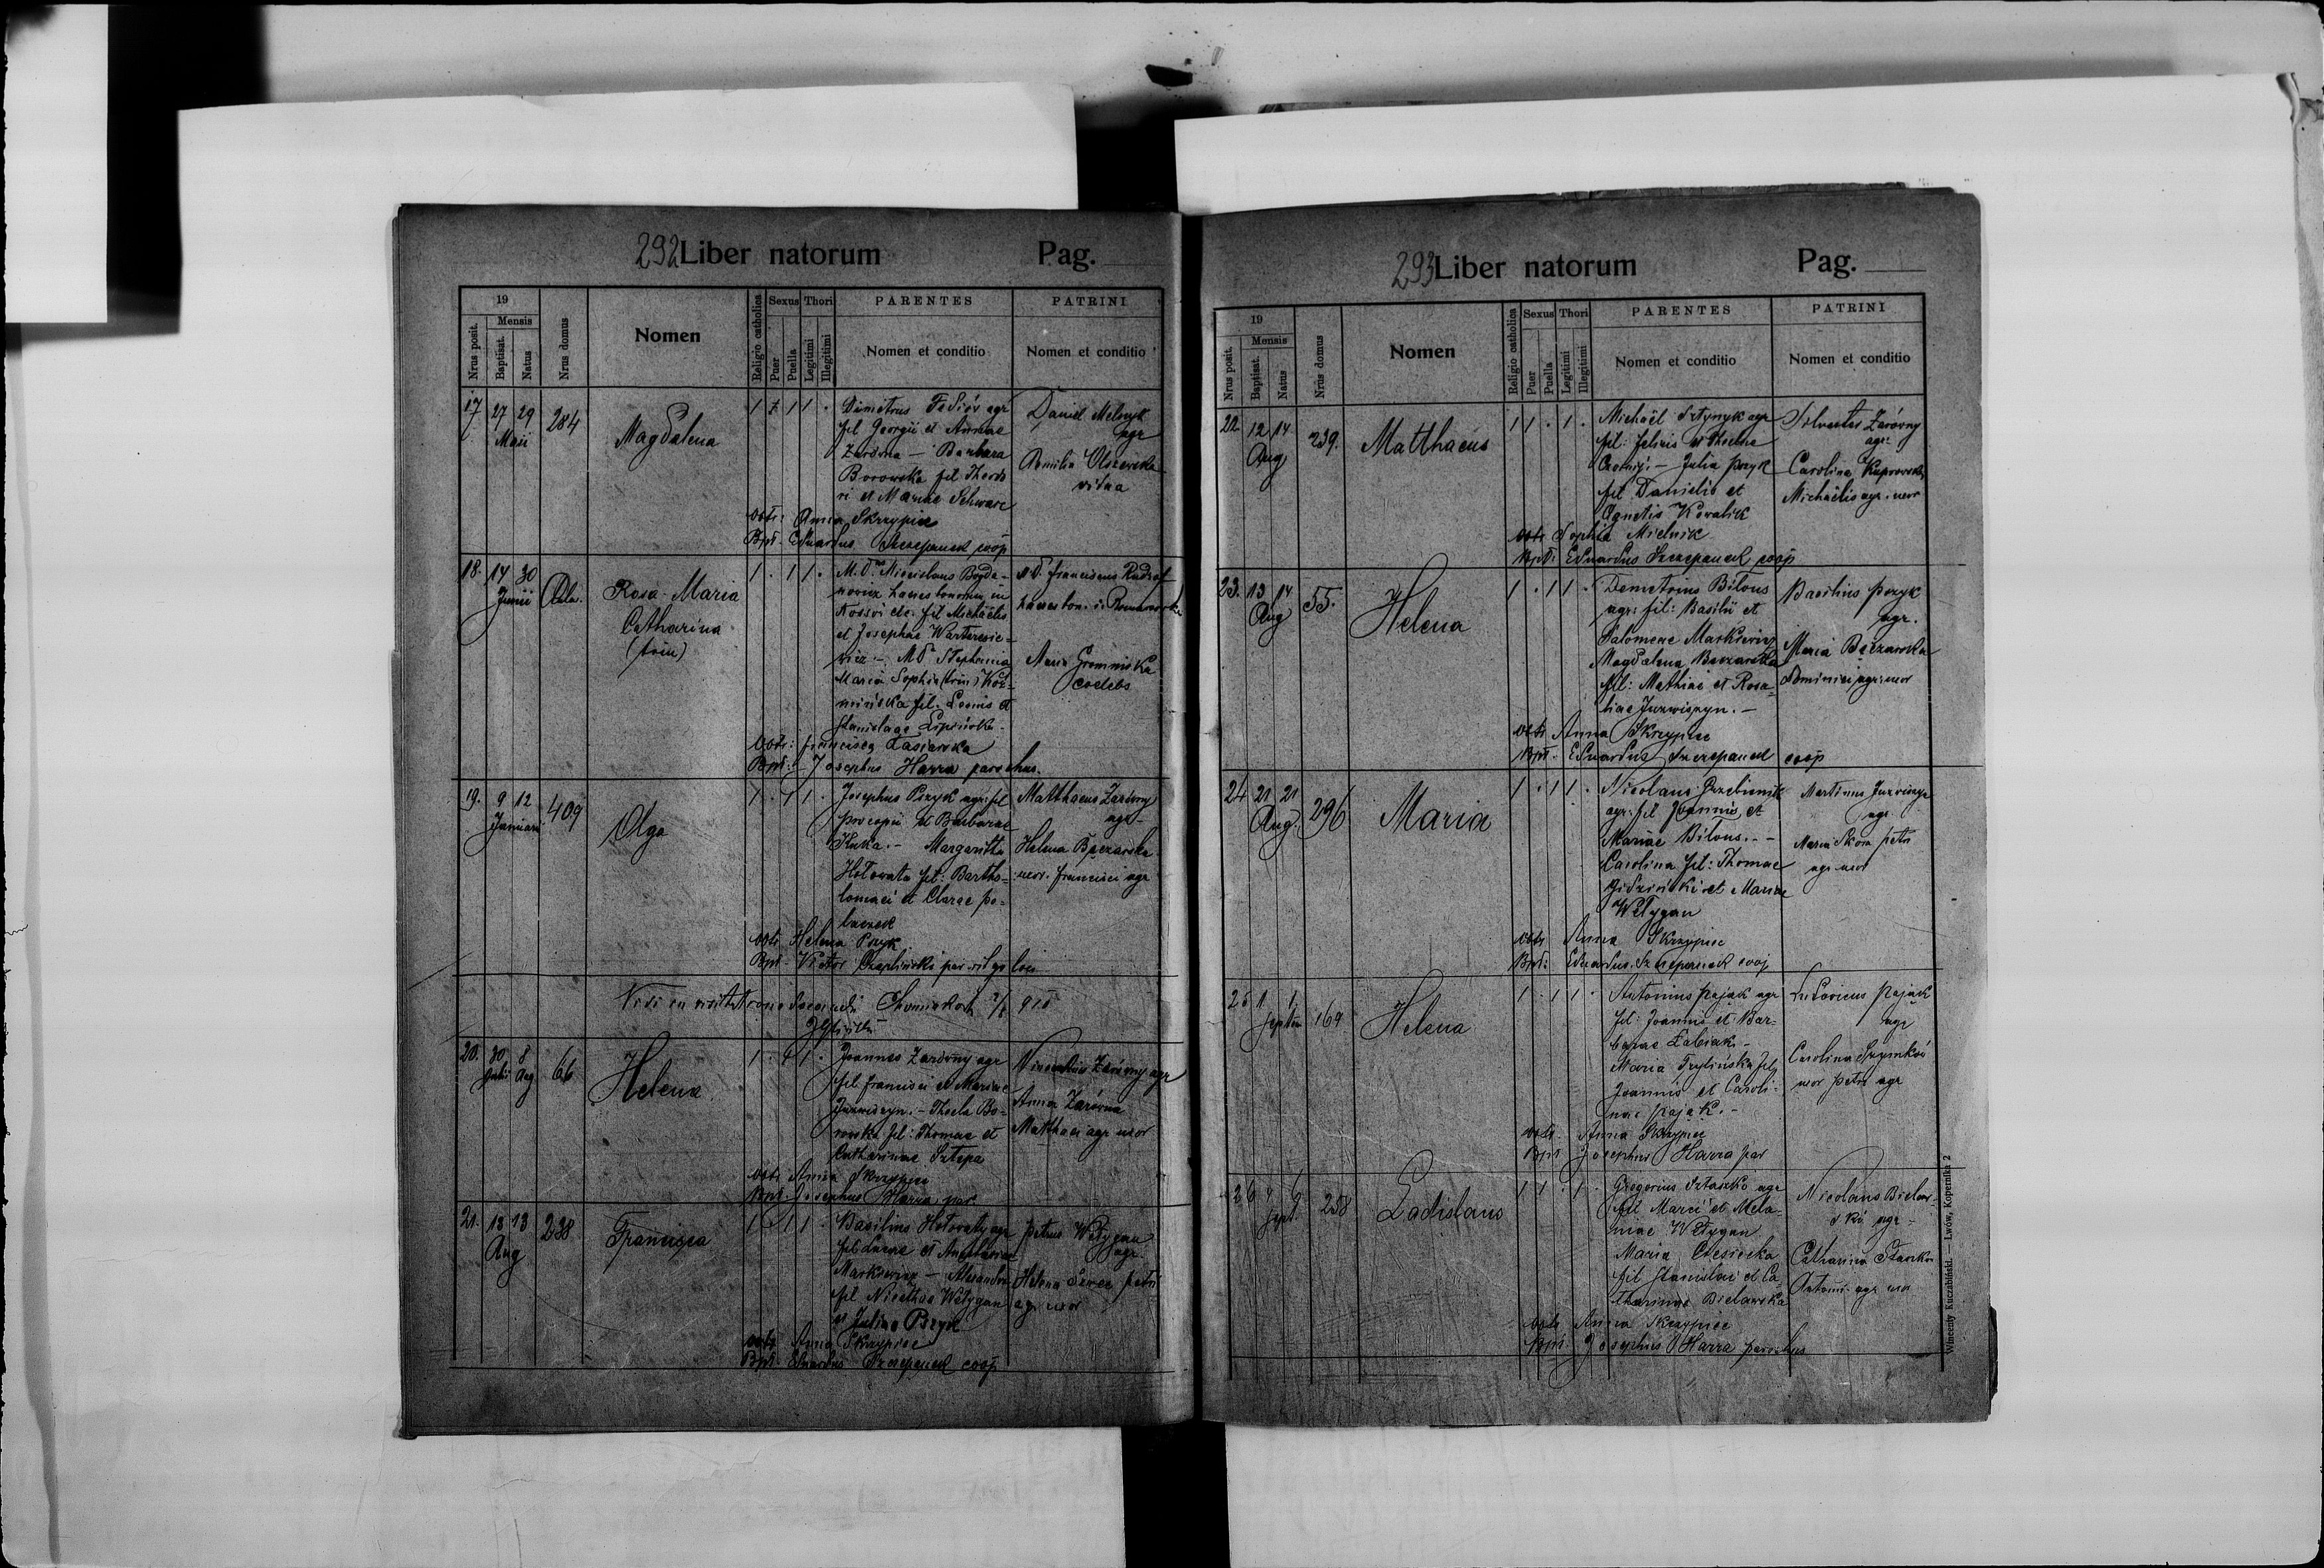 292 Liber natorum Pag.
19
Nrus posit.
Mensis
Baptisat.
Natus
Nrus domus
Nomen
Religio catholica
Sexus
Puer
Puella
Thori
Legitimi
Illegitimi
PARENTES
Nomen et conditio
PATRINI
Nomen et conditio
17
27 29
Maii
284
Magdalena
Dimetrius Fediów agr
fil Georgii et Annae
Zarówna — Barbara
Borowska fil Theodo
ri et Mariae Schwarc
Daniel Melnyk
agr
Romilia Olszewska
vidua
obst: Anna Skrzypiec
Bpt. Eduardus Szczepanek coop
18.
14 30
Junii
Rosa Maria
Catharina
(trin)
M. D. Miecislaus Bogda-
nowicz haeres bonorum in
et Josephae Warteresie-
wicz — M D Stephania
Maria Sophia (trin) Koź-
mińska fil. Leonis et
Stanislaae Lipińska
M D. Franciscus Rudrof
haeres bon.
Maria Gromnicka
coelebs
Obst: Francisca Tasiarska
Bpt: Josephus Harra parochus.
19.
9 12
Januarii
409
Olga
Josephus Pszyk agr. fil
Procopii et Barbarae
Kuka. — Margaritta
Hołowata fil: Bartho-
lomaei et Clarae Po-
laczek
Matthaeus Zarówny
agr
Helena Bęczarska
uxor. Francisci agr
obst Helena Pszyk
Bpt. Victor Czapliński par
Vidi in visitatione decanali
20.
30 8
Julii Aug
66
Helena
Joannes Zarówny agr
fil Francisci et Mariae
Juzwiszyn. — Thecla Bo-
rowska fil: Thomae et
Catharinae Sztepa
Vincentius Zarówny agr
Anna Zarówna
Matthaei agr uxor
obst Anna Skrzypiec
Bpt. Josephus Harra par
21.
13 13
Aug
238
Francisca
Basilius Hołowaty agr
fil Lucae et Anastasiae
Markiewicz — Alexandra
fil Nicethae Wełygan
et Julia Pszyk
Petrus Wełygan
agr
Helena Sewer Petri
agr uxor
obst Anna Skrzypiec
Bpt. Eduardus Szczepanek coop
293 Liber natorum Pag.
19
Nrus posit.
Mensis
Baptisat.
Natus
Nrus domus
Nomen
Religio catholica
Sexus
Puer
Puella
Thori
Legitimi
Illegitimi
PARENTES
Nomen et conditio
PATRINI
Nomen et conditio
22
12 14
Aug
239.
Matthaeus
Michaël Sztynyk agr
fil: Felicis et Theclae
— Julia Pszyk
fil Danielis et
Agnetis Kowalik
Silvester Zarówny
agr
Carolina Kuprowska
Michaëlis agr. uxor
obst Sophia Mielnik
Bpt: Eduardus Szczepanek coop
23.
13 14
Aug
55.
Helena
Demetrius Biłous
agr: fil: Basilii et
Salomeae Markiewicz
Magdalena Bęczarska
fil: Mathiae et Rosa-
liae Juzwiszyn. —
Basilius Pszyk
agr.
Maria Bęczarska
Dominici agr. uxor
obst Anna Skrzypiec
Bpt. Eduardus Szczepanek coop
24
21 21
Aug.
296
Maria
Nicolaus
agr. fil Joannis et
Mariae Biłous. —
Carolina fil: Thomae
et Mariae
Wełygan
Martinus
agr
Maria Skora Petri
agr uxor
obst Anna Skrzypiec
Bpt: Eduardus Szczepanek coop
25
1 1
Septem
169
Helena
Antonius Pająk agr
fil: Joannis et Bar-
barae Łabiak —
Maria fil
Joannis et Caroli-
nae Pająk. —
Ludovicus Pająk
agr
Carolina Szymków
uxor Petri agr
obst. Anna Skrzypiec
Bpt Josephus Harra par
26
Sept.
258
Ladislaus
Gregorius Sztaszko agr
fil Marci et Mela-
niae Wełygan
Maria Olesiecka
fil Stanislai et Ca
tharinae Bielawska
Nicolaus Bielaw-
ski agr —
Catharina Staszko
Antonii agr uxor
obst Anna Skrzypiec
Bpt. Josephus Harra parochus
Wincenty Kuczabiński — Lwów, Kopernika 2